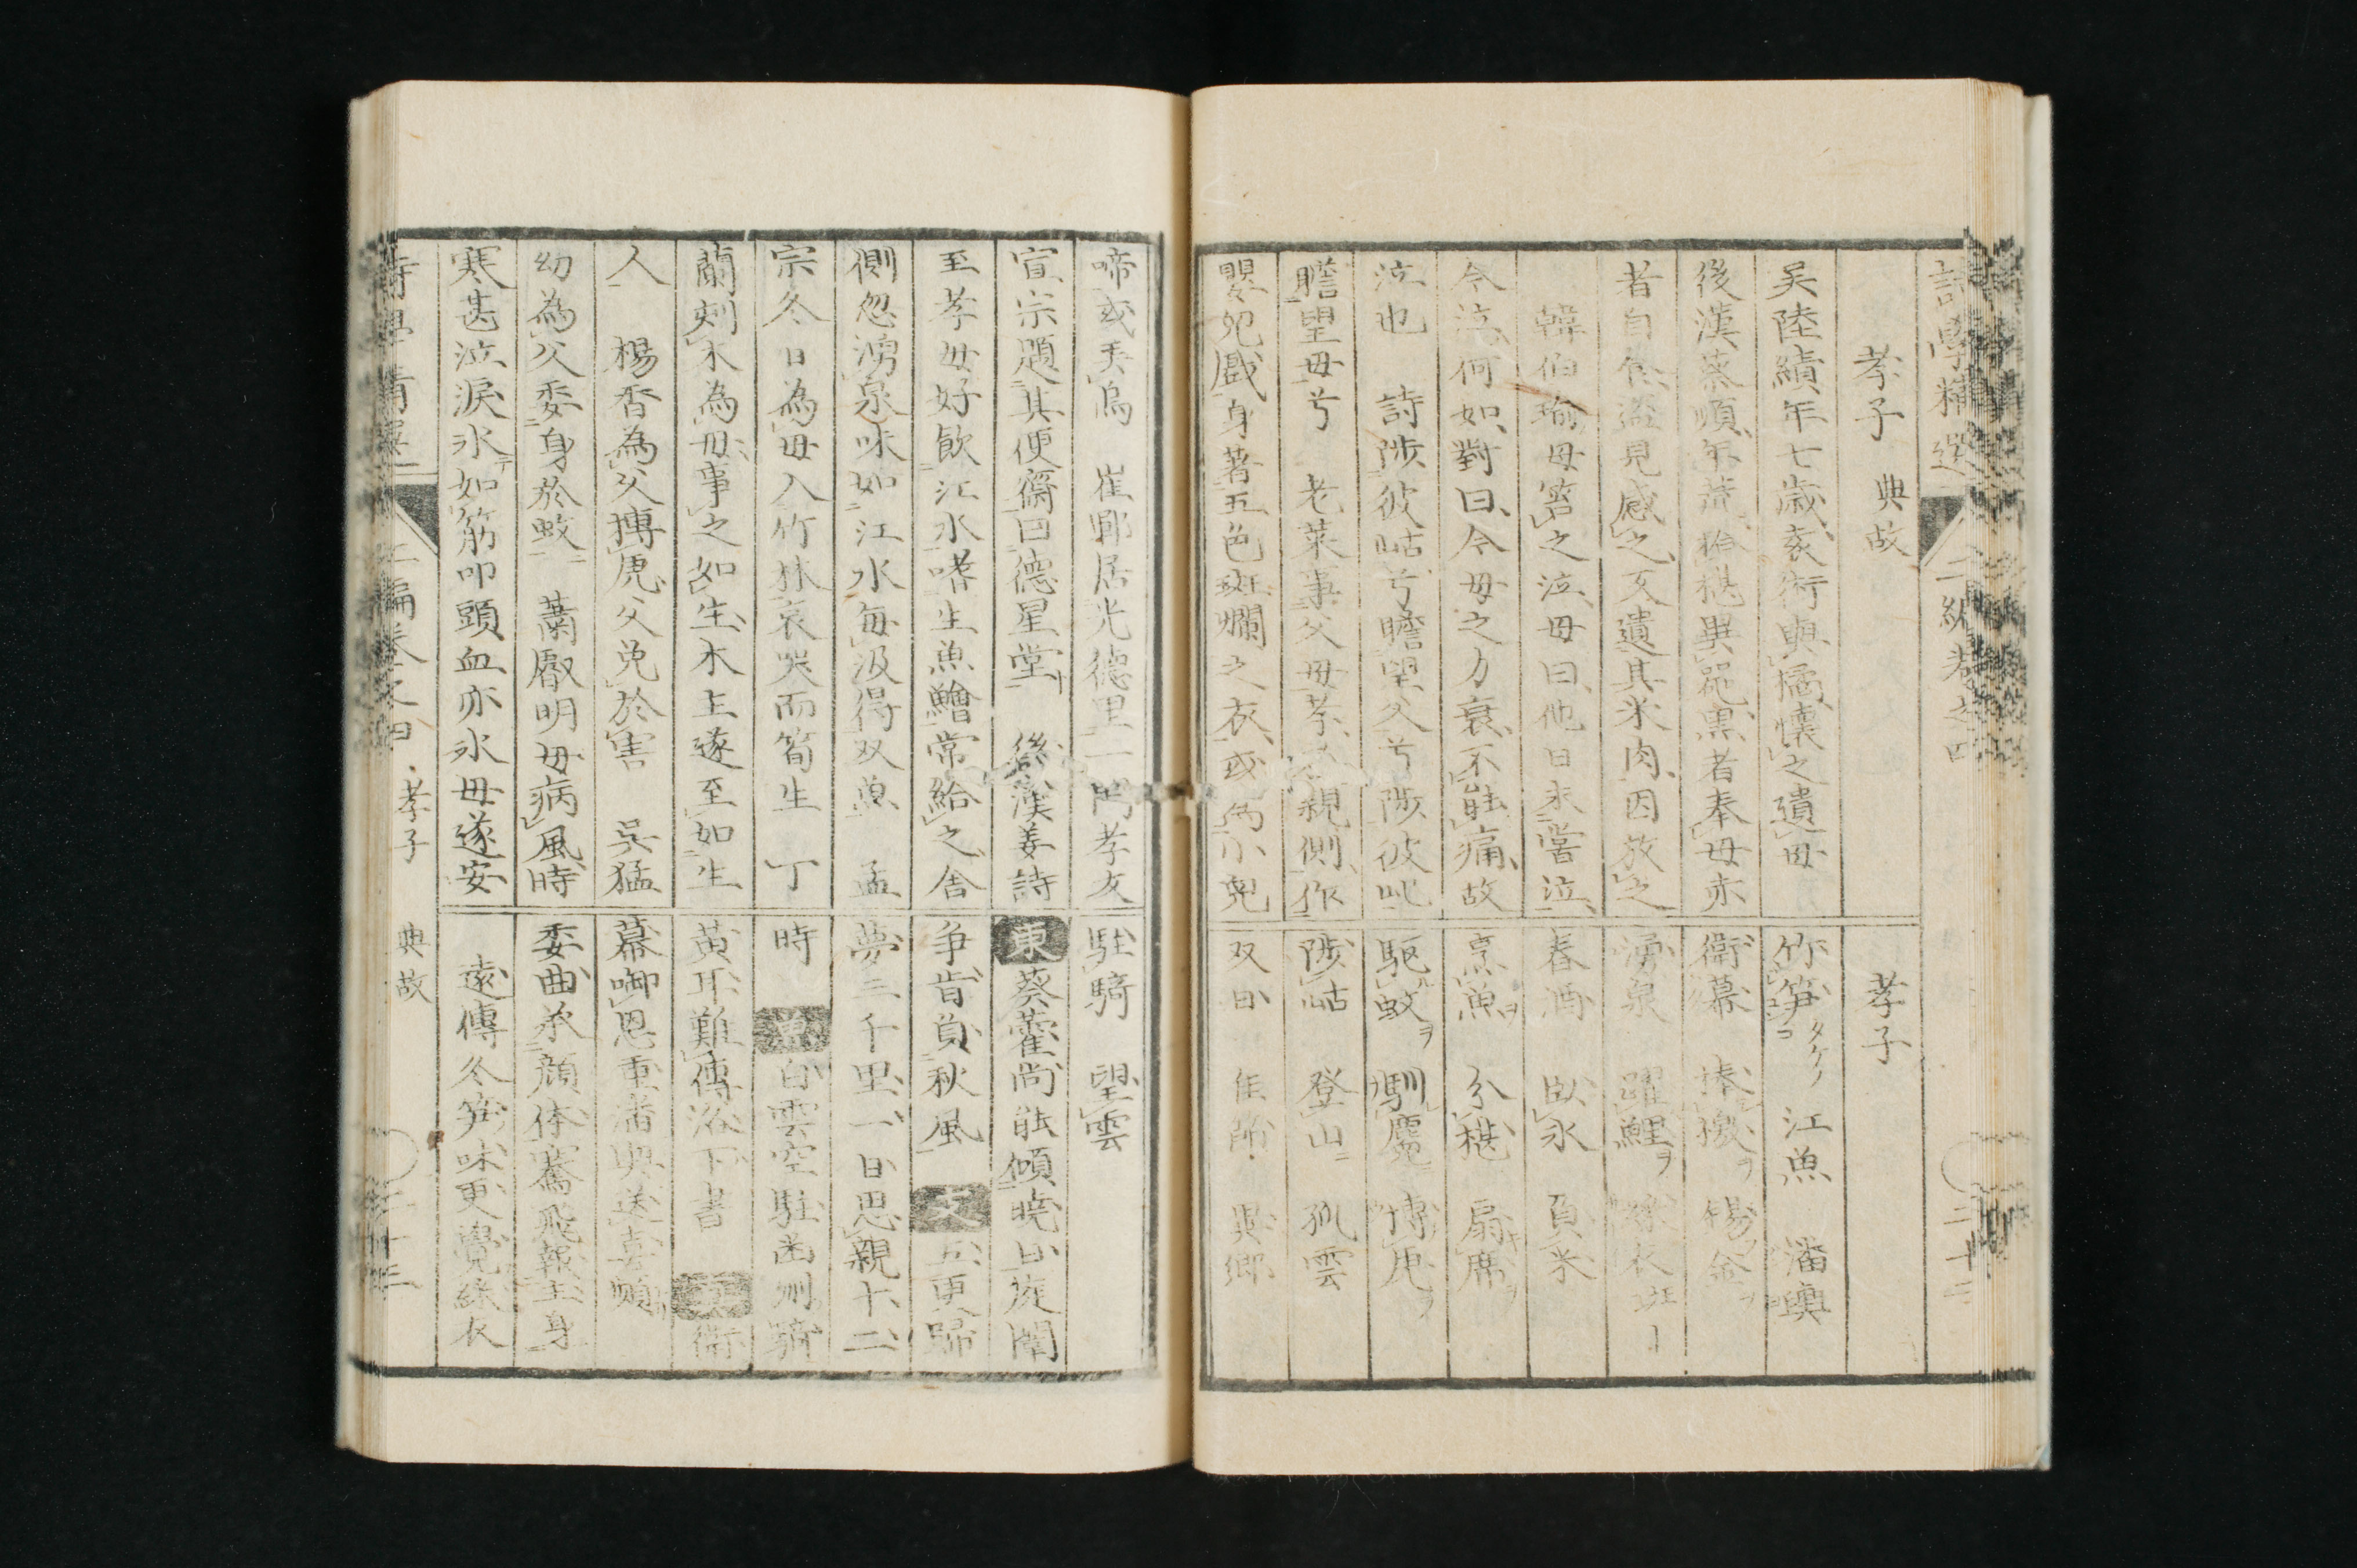 詩學精選 二編卷之四 二十三
孝子 典故
吴陸績年七歳袁術與橘懷之遺毋
後漢蔡順年荒拾椹異噐黒者奉母赤
者自食盗見感之又遺其米肉因放之
韓伯瑜母笞之泣母曰他日未嘗泣
今泣何如對曰今母之力衰不能痛故
泣也 詩陟彼岵兮瞻望父兮陟彼屺
瞻望母兮 老萊事父母孝 親側作
嬰兒戯身著五色斑爛之衣或為小兒
孝子
竹笋タケノコ 江魚 潘輿
衛幕 捧檄ヲ 錫金ヲ
湧泉 躍鯉ヲ 綵衣班〡
春酒 臥氷 負米
烹魚ヲ 分椹 扇席ヲ
駆蚊ヲ 馴麑 博虎ヲ
陟岵 登山 孤雲
双日 佳節 異郷
啼或弄烏 崔鄲居光德里一門孝友
宣宗題其便齋曰德星堂 後漢姜詩
至孝母好飲江水嗜生魚鱠常給之舍
側忽湧泉味如江水毎汲得双魚 孟
宗冬日為母入竹林哀哭而筍生 丁
蘭刻木為母事之如生木主遂至如生
人 楊香為父搏虎父免於害 呉猛
幼為父委身於蚊 蕭叡明母病風時
寒甚泣涙氷如筋叩頭血亦氷母遂安
駐騎 望雲
東 葵藿尚能傾暁日庭闈
争肯負秋風 文 五更歸
夢三千里一日思親十二
時 白雲空駐 騎
黄耳難傳洛下書 衛
幕啣恩重潘輿送喜頻
委曲承顔体騫飛報主身
遠傳冬笋味更覺綵衣
詩學精選 二編卷之四 孝子 典故 二十三